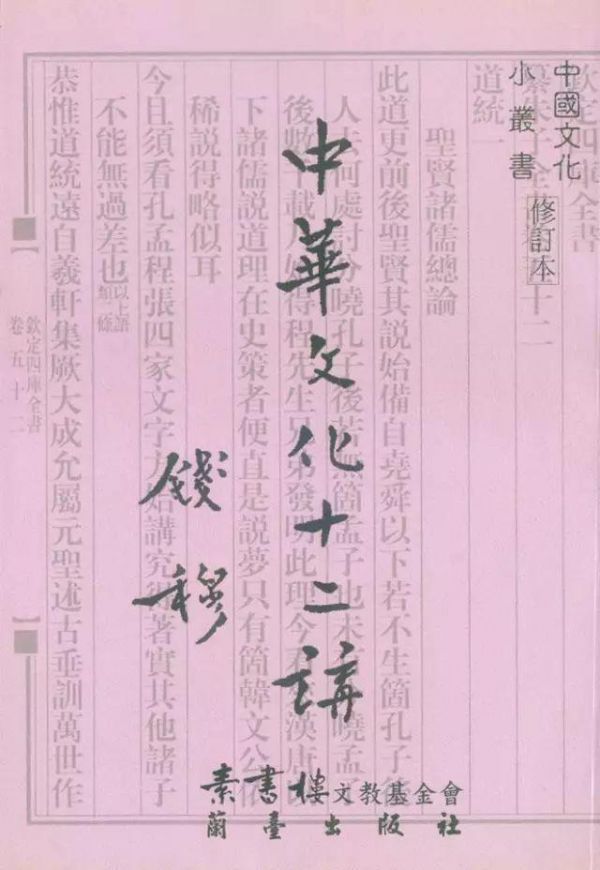 中國文化
小叢書
修訂本
中華文化十二講
錢穆
素書樓文教基金會
蘭臺出版社
欽定四庫全書
纂朱子全書十二
道統一
聖賢諸儒總論
此道更前後聖賢其說始備自堯舜以下若不生箇孔子後
人去何處討分曉孔子後若無箇孟子也未曉孟子
後數載得程先生兄弟發明此理今看漢唐以
下諸儒說道理在史策者便直是說夢只有箇韓文公依
稀說得略似耳
今且須看孔孟程張四家文字方始講究得著實其他諸子
不能無過差也以上語類條
恭惟道統遠自羲軒集厥大成允屬元聖述古垂訓萬世作
欽定四庫全書
卷五十二